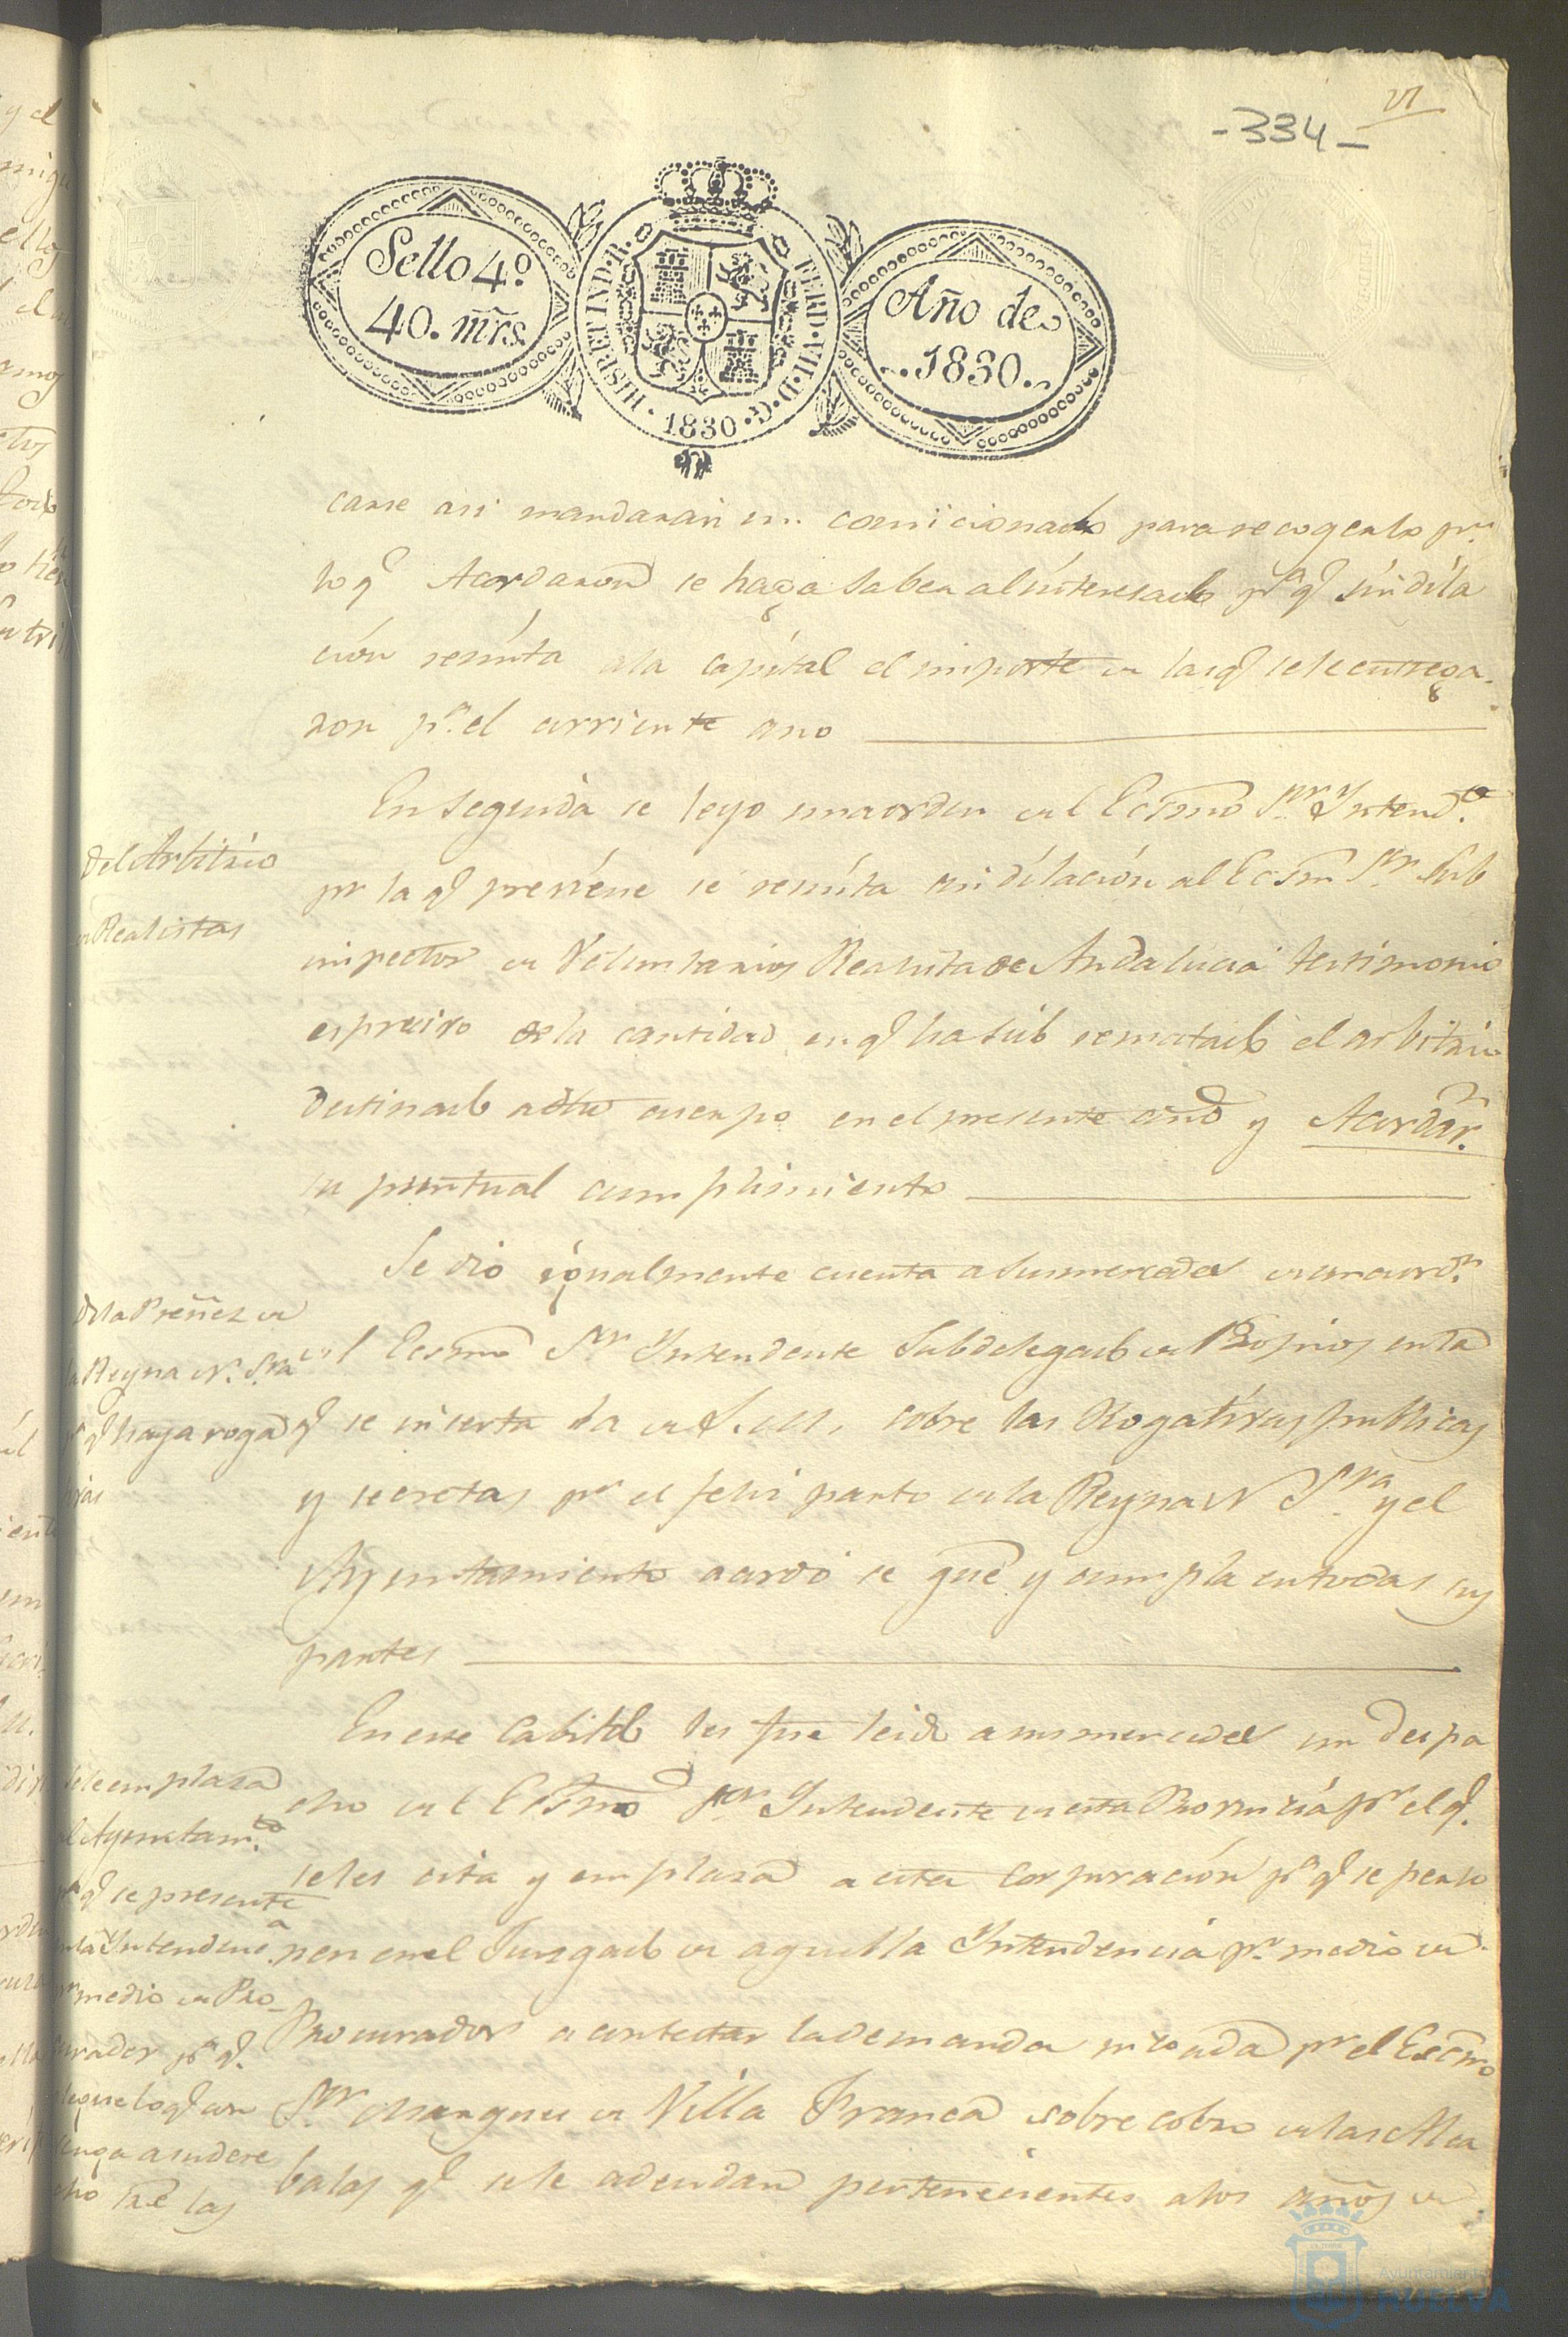 VI
-334-
Sello 4º
40. mrs.
HISP. ET IND. R. FERD. VII. D. G. 1830
Año de
1830.
carse asi mandaran un comicionado para recogerlo pr.
lo q.e Acordaron se haga saber al interesado pa. q.e sin dila
cion remita a la capital el importe de las q.e se le entrega
ron pa. el corriente ano
Del Arbitrio
de Realistas
En seguida se leyo una orden del Ecsmo Sr. Intend.te
pr la q.e previene se remita sin dilacion al Ecsmo Sr. Sub
inspector de Voluntarios Realistas de Andalucia testimonio
espresivo de la cantidad en q.e ha sido rematado el arbitrio
destinado a dho cuerpo en el presente año y Acordar.n
su puntual cumplimiento
De la Preñez de
la Reyna N. Sra.
pa q.e haya rogati
vas
Se dio igualmente cuenta a sus mercedes de una ord.n
del Ecsmo Sr Intendente Subdelegado de Propios en la
q.e se inserta la de sobre las Rogativas publicas
y secretas pr el feliz parto de la Reyna N Sra. y el
Ayuntamiento acordo se gue y cumpla en todas sus
partes
Se le emplaza
al Ayuntam.to
pa q.e se presente
en la Intendenc.a
pr medio de Pro
curador pa q.e
alegue lo q.e con
benga a su dere
cho sre las
En este Cabildo les fue leido a sus mercedes un despa
cho del Ecsmo Sor Intendente de esta Provincia pr el q.e
se les cita y emplaza a esta Corporacion pa q.e se perso
nen en el Jusgado de aquella Intendencia pr. medio de
Procurador a contestar la demanda pr el Escmo
Sr Marques de Villa Franca sobre cobro de las Alca
balas q.e se le adeudan pertenecientes a los años de
Ayuntamiento de
HUELVA